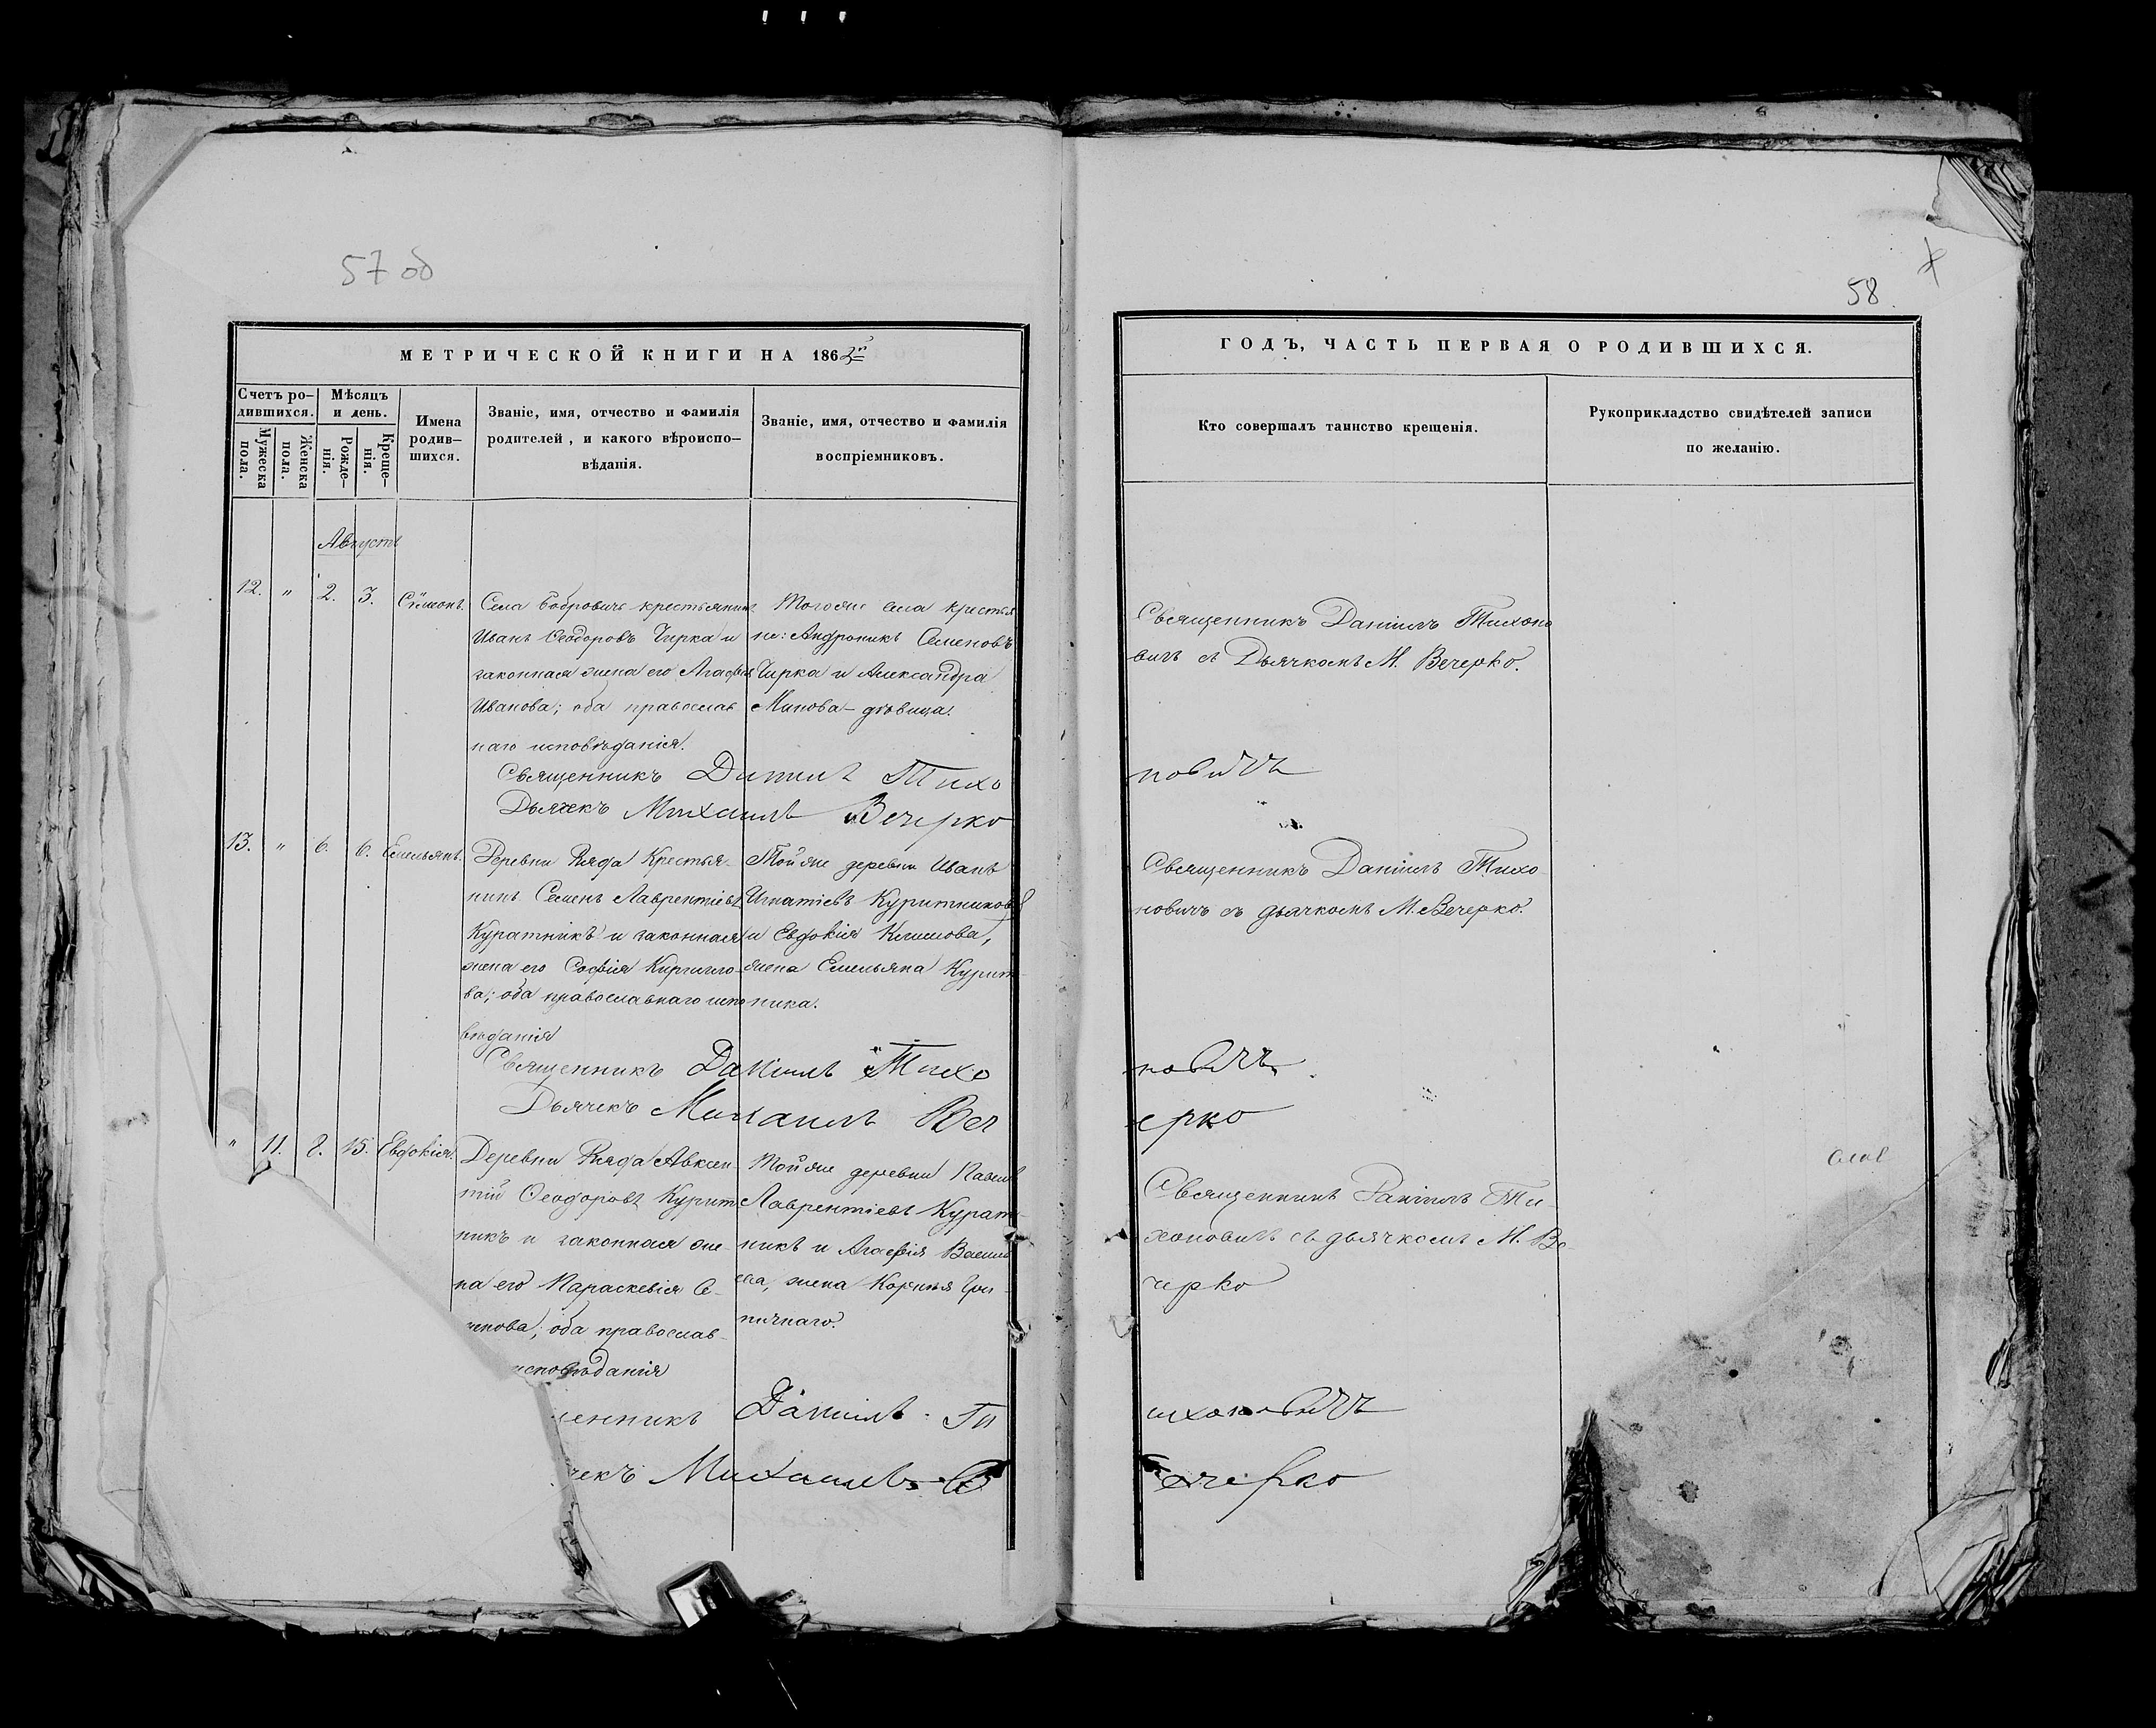 57 об
58
МЕТРИЧЕСКОЙ КНИГИ НА 186
ГОДЪ, ЧАСТЬ ПЕРВАЯ О РОДИВШИХСЯ.
Счетъ ро-
дившихся.
Мужеска
пола.
Женска
пола.
Мѣсяцъ
и день.
Рожде-
нія.
Креще-
нія.
Имена
родив-
шихся.
Званіе, имя, отчество и фамилія
родителей, и какого вѣроиспо-
вѣданія.
Званіе, имя, отчество и фамилія
воспріемниковъ.
Кто совершалъ таинство крещенія.
Рукоприкладство свидѣтелей записи
по желанію.
Августъ
12. " 2. 3. Симонъ.
Села Бобровичъ крестьянинъ
Иванъ Ѳеодоровъ Чирка и
законная жена его Агафія
Иванова; оба православ
наго исповѣданія.
Тогоже села крестья
не: Андроникъ Семеновъ
Чирка и Александра
Минова - дѣвица.
Священникъ Даніилъ Тихоно
вичъ съ Дьячкомъ М. Вечерко.
Священникъ Даніилъ Тихо
новичъ
Дьячекъ Михаилъ Вечерко
13. " 6. 6. Емельянъ.
Деревни Крестья-
нинъ Семенъ Лаврентіевъ
Куратникъ и законная
жена его Софія Кирилло-
ва; оба православнаго испо
вѣданія
Тойже деревни Иванъ
Игнатіевъ Куритниковъ
и Евдокія Климова,
жена Емельяна Курит-
ника.
Священникъ Даніилъ Тихо
новичъ съ дьячкомъ М. Вечерко.
Священникъ Даніилъ Тихо
новичъ
Дьячекъ Михаилъ Веч
ерко
" 11. 8. 15. Евдокія.
Деревни Авксен-
тій Ѳеодоровъ Курит
никъ и законная же-
на его Параскевія С-
нова; оба православ-
исповѣданія
Тойже деревни Павелъ
Лаврентіевъ Курат-
никъ и Агафія Васил
ева, жена Корнилія
Священникъ Даніилъ Ти-
хоновичъ съ дьячкомъ М. Ве-
черко
енникъ Даніилъ Ти
ихоновичъ
чекъ Михаилъ В
ечерко